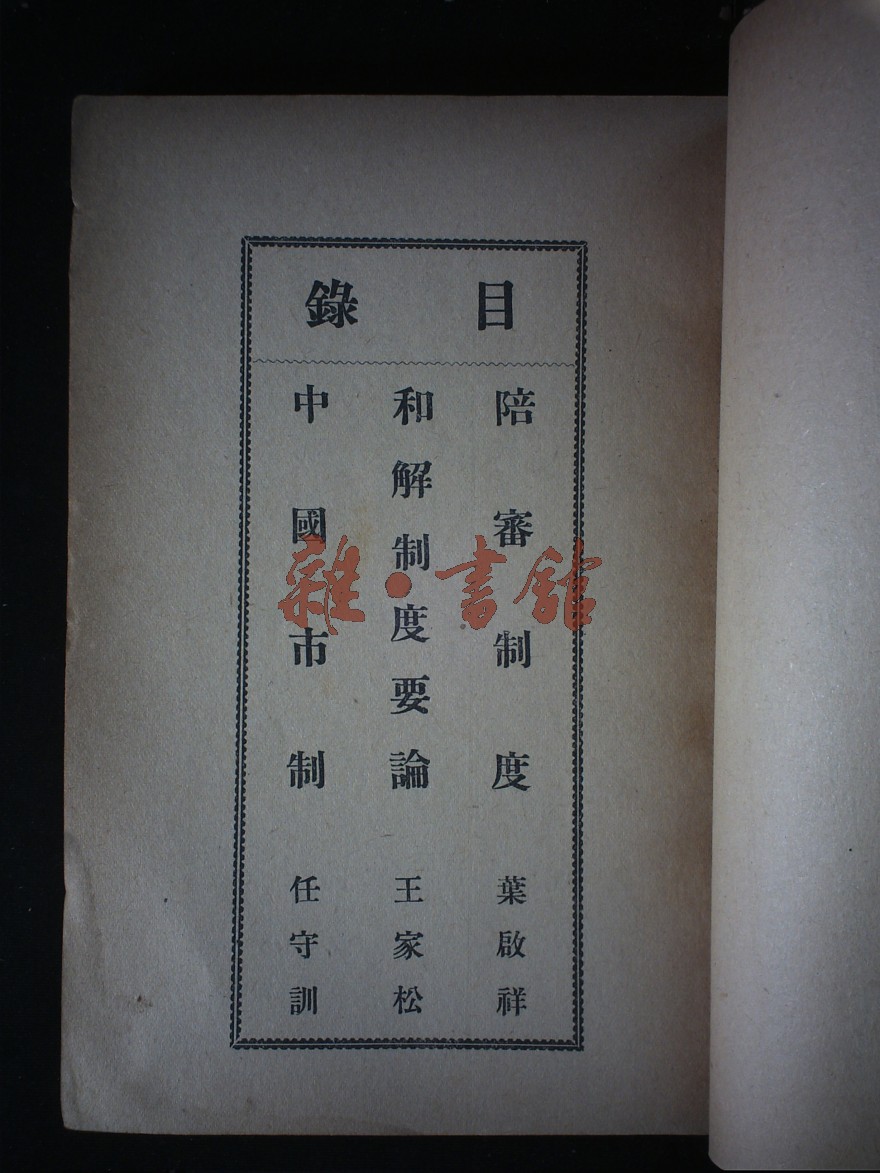 目錄
陪審制度 葉啟祥
和解制度要論 王家松
中國市制 任守訓
雜·書館